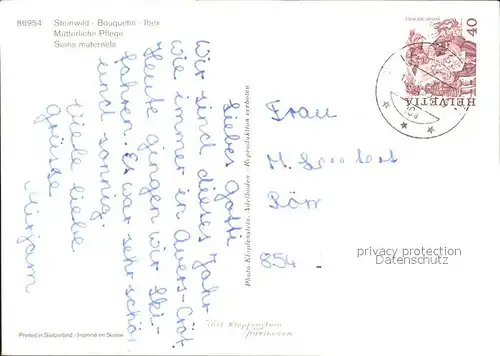 86954 Steinwild - Bouquetin - Ibex
Mütterliche Pflege
Soins maternels
Liebes Gotti
Wir sind dieses Jahr
wie immer in Avers-Cröt.
Heute gingen wir Ski-
fahren. Es war sehr schön
und sonnig.
Viele liebe
Grüsse
Mirjam
Photo Klopfenstein, Adelboden - Reproduktion verboten
Frau
M.
854
HELVETIA
40
privacy protection
Datenschutz
Printed in Switzerland - Imprimé en Suisse
Klopfenstein
Adelboden